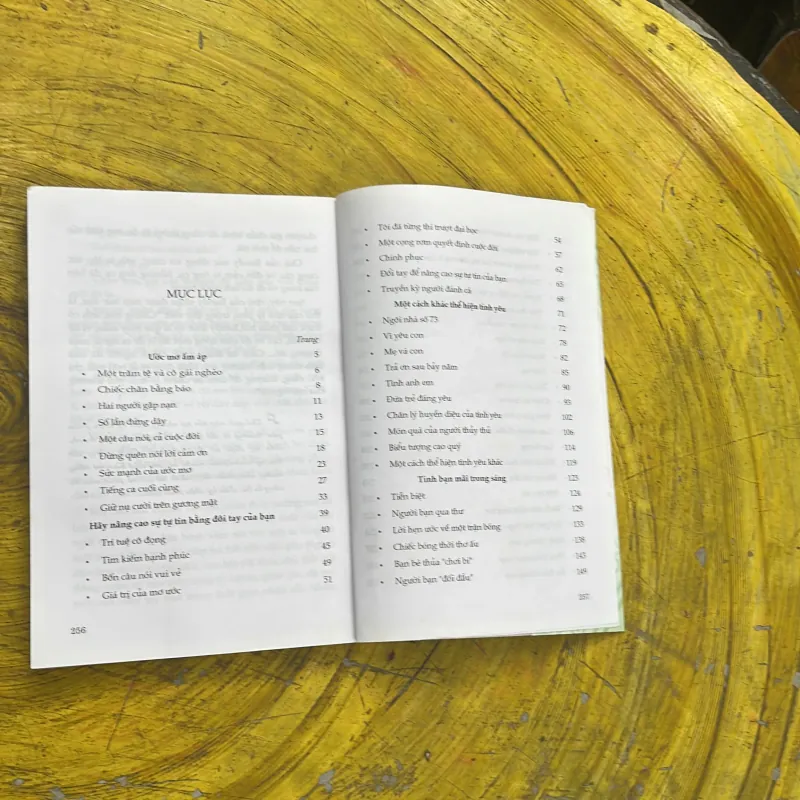 MỤC LỤC
Trang
Ước mơ ấm áp 5
• Một trăm tệ và cô gái nghèo 6
• Chiếc chăn bằng báo 8
• Hai người gặp nạn 11
• Số lần đứng dậy 13
• Một câu nói, cả cuộc đời 15
• Đừng quên nói lời cảm ơn 18
• Sức mạnh của ước mơ 23
• Tiếng ca cuối cùng 27
• Giữ nụ cười trên gương mặt 33
Hãy nâng cao sự tự tin bằng đôi tay của bạn 39
• Trí tuệ cô đọng 40
• Tìm kiếm hạnh phúc 45
• Bốn câu nói vui vẻ 49
• Giá trị của mơ ước 51
256
• Tôi đã từng thi trượt đại học 54
• Một cọng rơm quyết định cuộc đời 57
• Chinh phục 62
• Đổi tay để nâng cao sự tự tin của bạn 65
• Truyền kỳ người đánh cá 68
Một cách khác thể hiện tình yêu 71
• Ngôi nhà số 73 72
• Vì yêu con 78
• Mẹ và con 82
• Trả ơn sau bảy năm 85
• Tình anh em 90
• Đứa trẻ đáng yêu 95
• Chân lý huyền diệu của tình yêu 102
• Món quà của người thủy thủ 106
• Biểu tượng cao quý 114
• Một cách thể hiện tình yêu khác 119
Tình bạn mãi trong sáng 123
• Tiễn biệt 124
• Người bạn qua thư 129
• Lời hẹn ước về một trận bóng 133
• Chiếc bóng thời thơ ấu 138
• Bạn bè thủa "chơi bi" 143
• Người bạn "đối đầu" 149
257